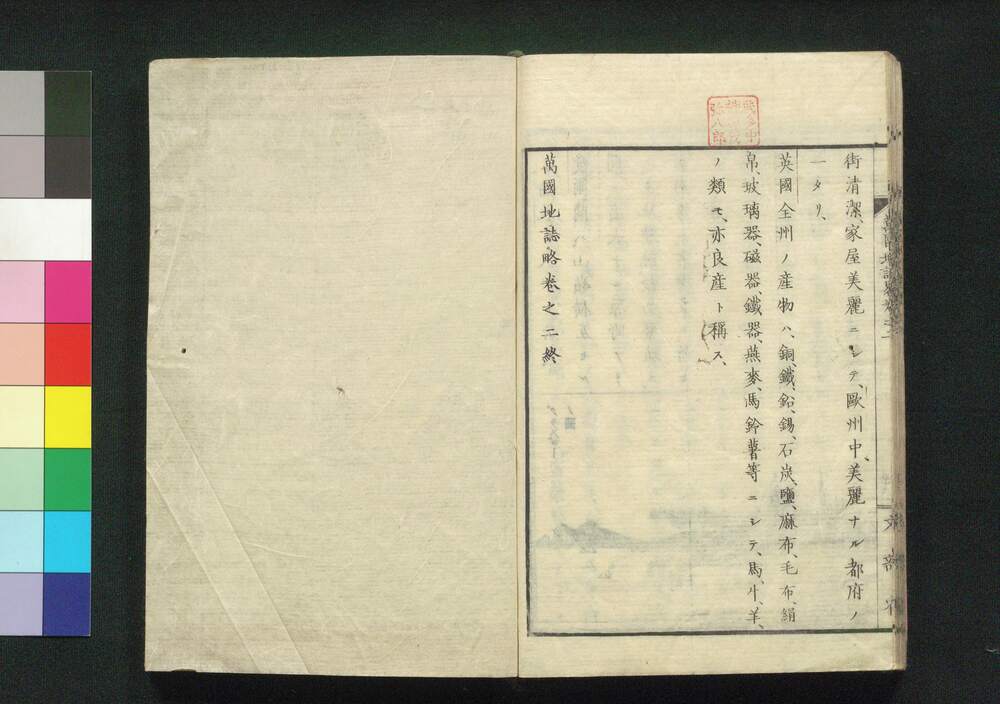 街清潔、家屋美麗ニシテ、歐州中、美麗ナル都府ノ
一タリ、
英國全州ノ產物ハ、銅、鐵、鉛、錫、石炭、鹽、麻布、毛布、絹
帛、玻璃器、磁器、鐵器、燕麥、馬鈴薯等ニシテ、馬、牛、羊、
ノ類モ、亦良產ト稱ス、
萬國地誌略卷之二終